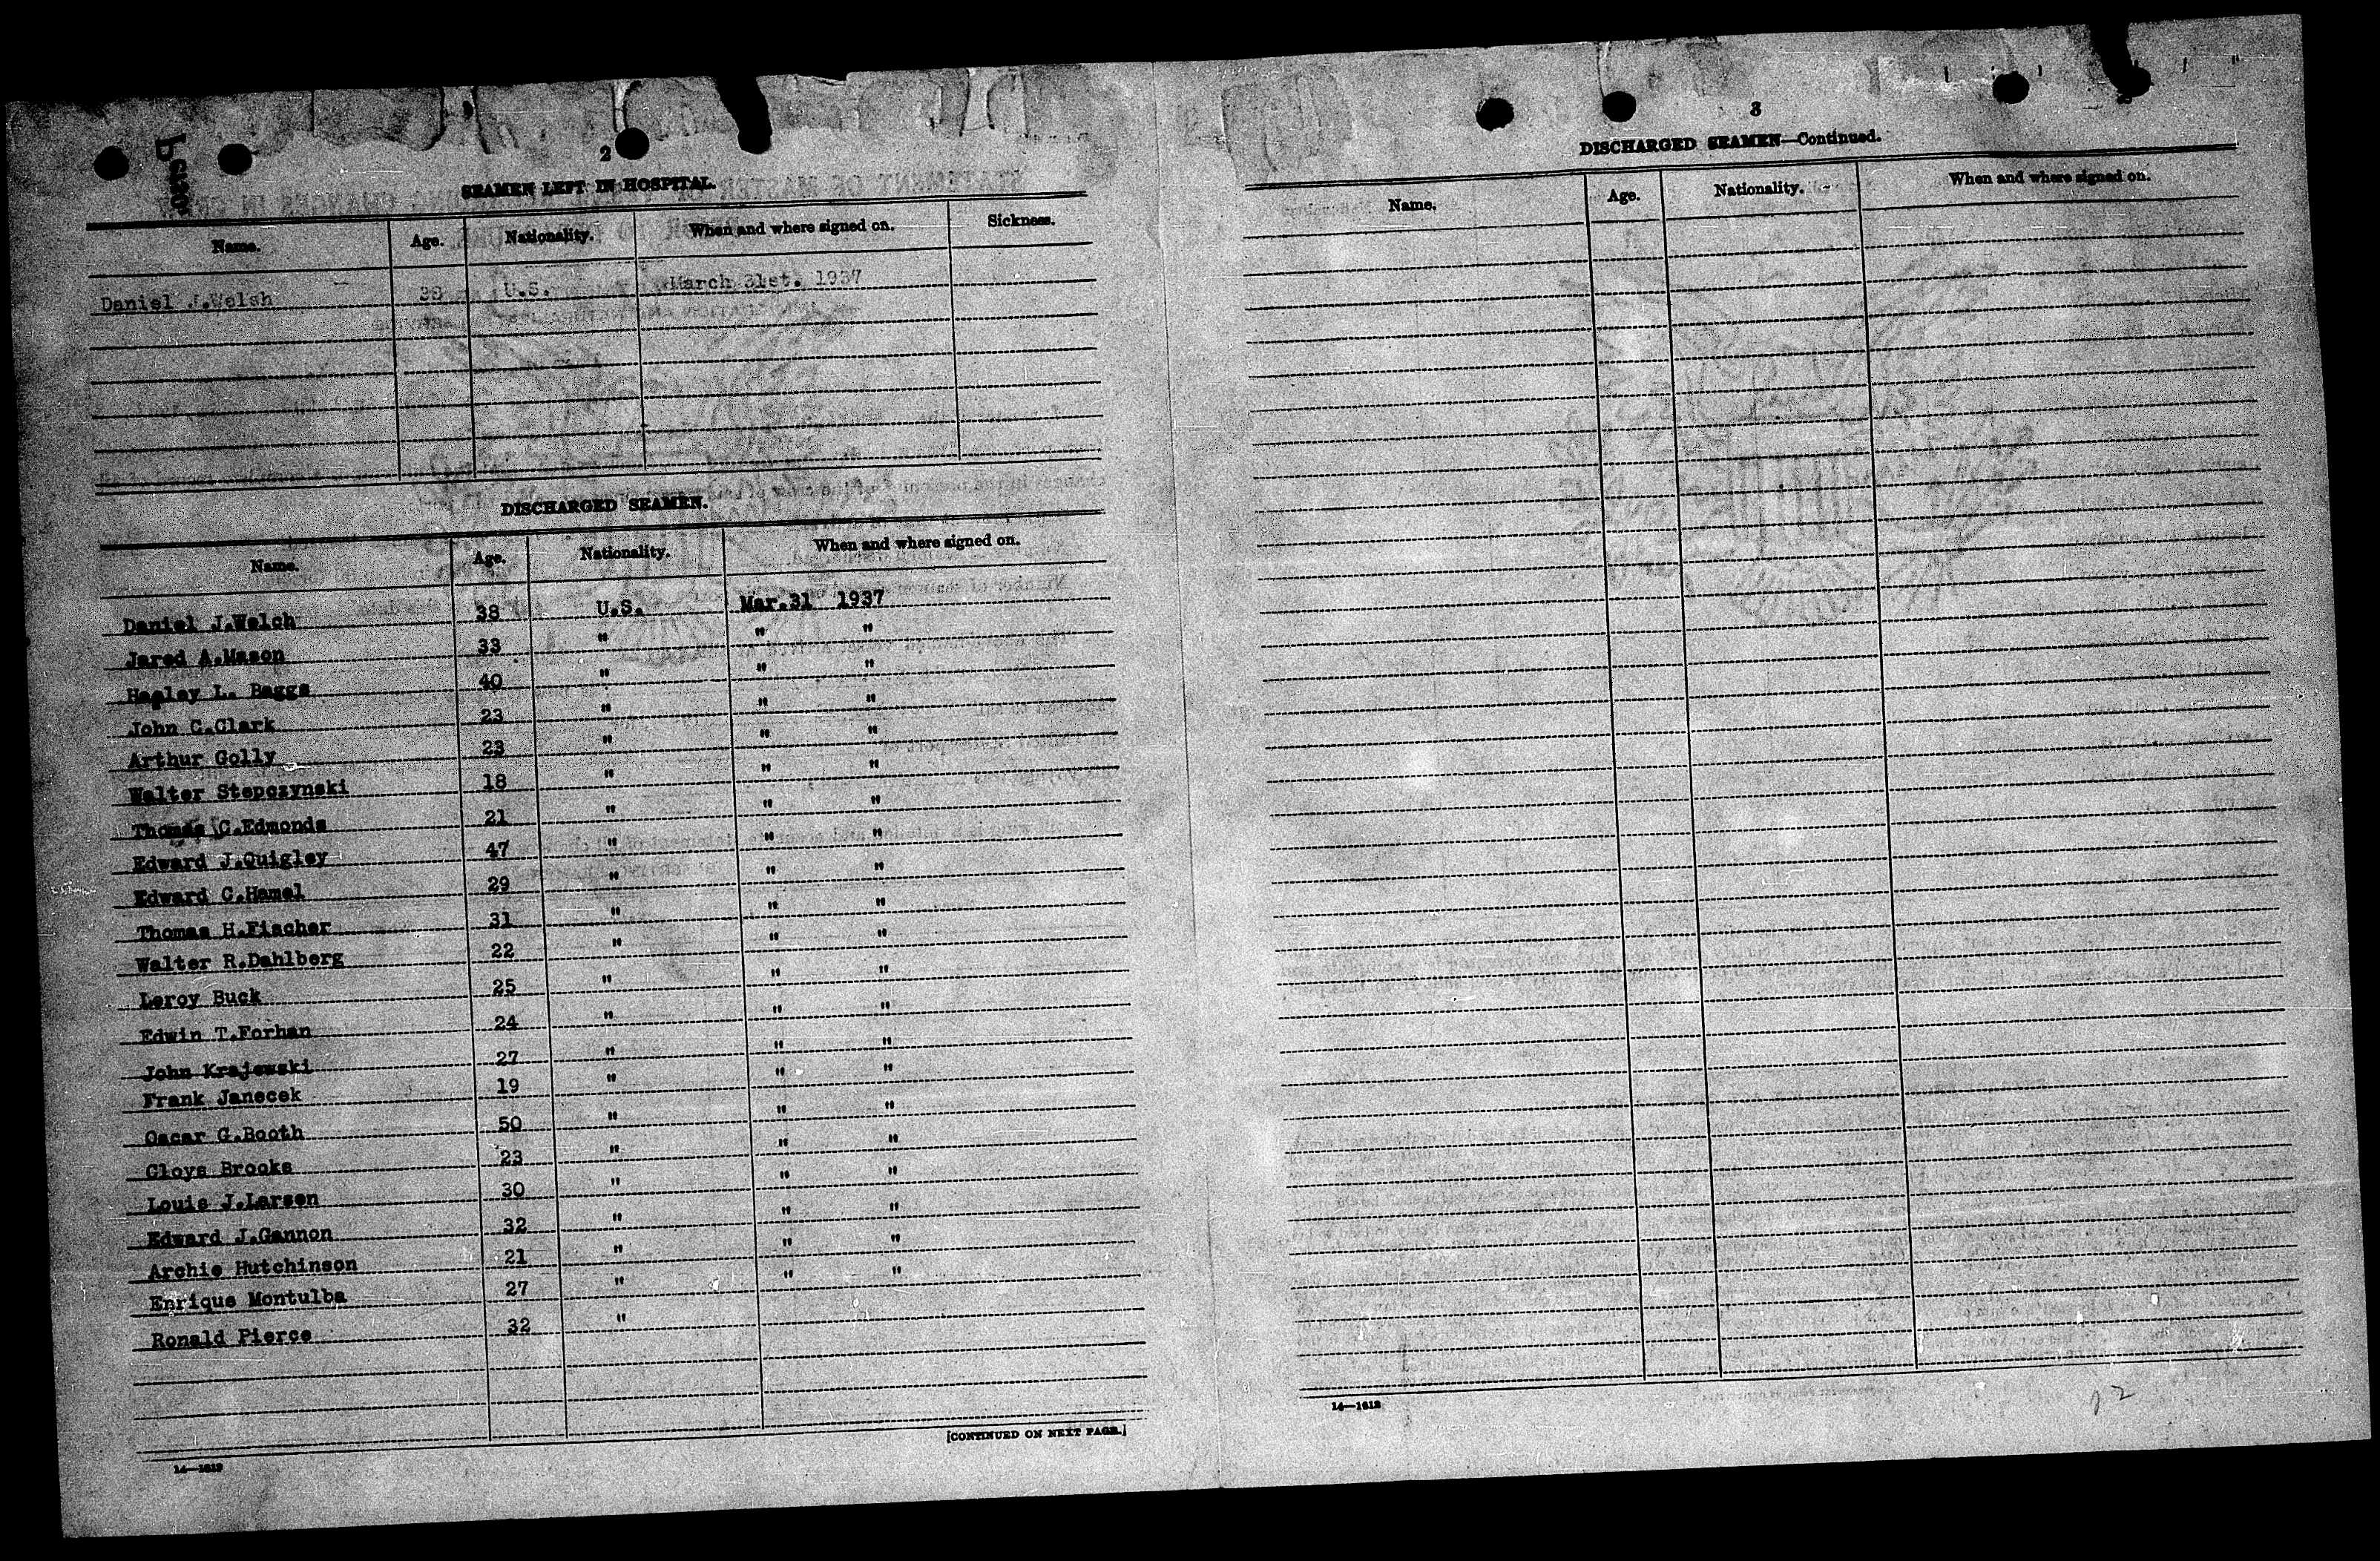 2
SEAMEN LEFT IN HOSPITAL.
Name. Age. Nationality. When and where signed on. Sickness.
Daniel J.Welsh 38 U.S. March 31st. 1937
DISCHARGED SEAMEN.
Name. Age. Nationality. When and where signed on.
Daniel J.Welch 38 U.S. Mar.31 1937
Jared A.Mason 33 " " "
L. Baggs 40 " " "
John C.Clark 23 " " "
Arthur Golly 23 " " "
Walter Stepczynski 18 " " "
Thomas C.Edmonds 21 " " "
Edward J.Quigley 47 " " "
Edward C.Hamel 29 " " "
Thomas H.Fischer 31 " " "
Walter R.Dahlberg 22 " " "
Leroy Buck 25 " " "
Edwin T.Forhan 24 " " "
John Krajewski 27 " " "
Frank Janecek 19 " " "
Oscar G.Booth 50 " " "
Cloys Brooks 23 " " "
Louis J.Larsen 30 " " "
Edward J.Gannon 32 " " "
Archie Hutchinson 21 " " "
Enrique Montulba 27 " " "
Ronald Pierce 32 "
[CONTINUED ON NEXT PAGE.]
14—1612
3
DISCHARGED SEAMEN—Continued.
Name. Age. Nationality. When and where signed on.
14—1612